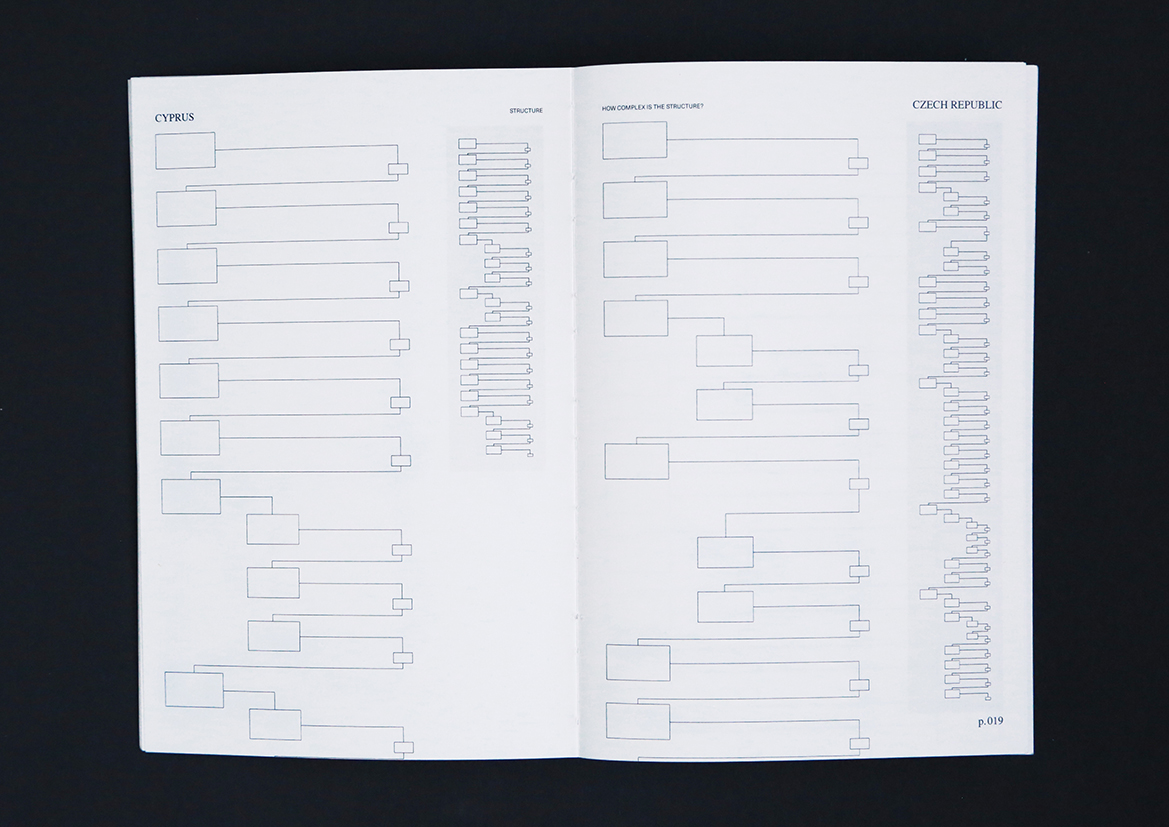 CYPRUS
STRUCTURE
HOW COMPLEX IS THE STRUCTURE?
CZECH REPUBLIC
p.019